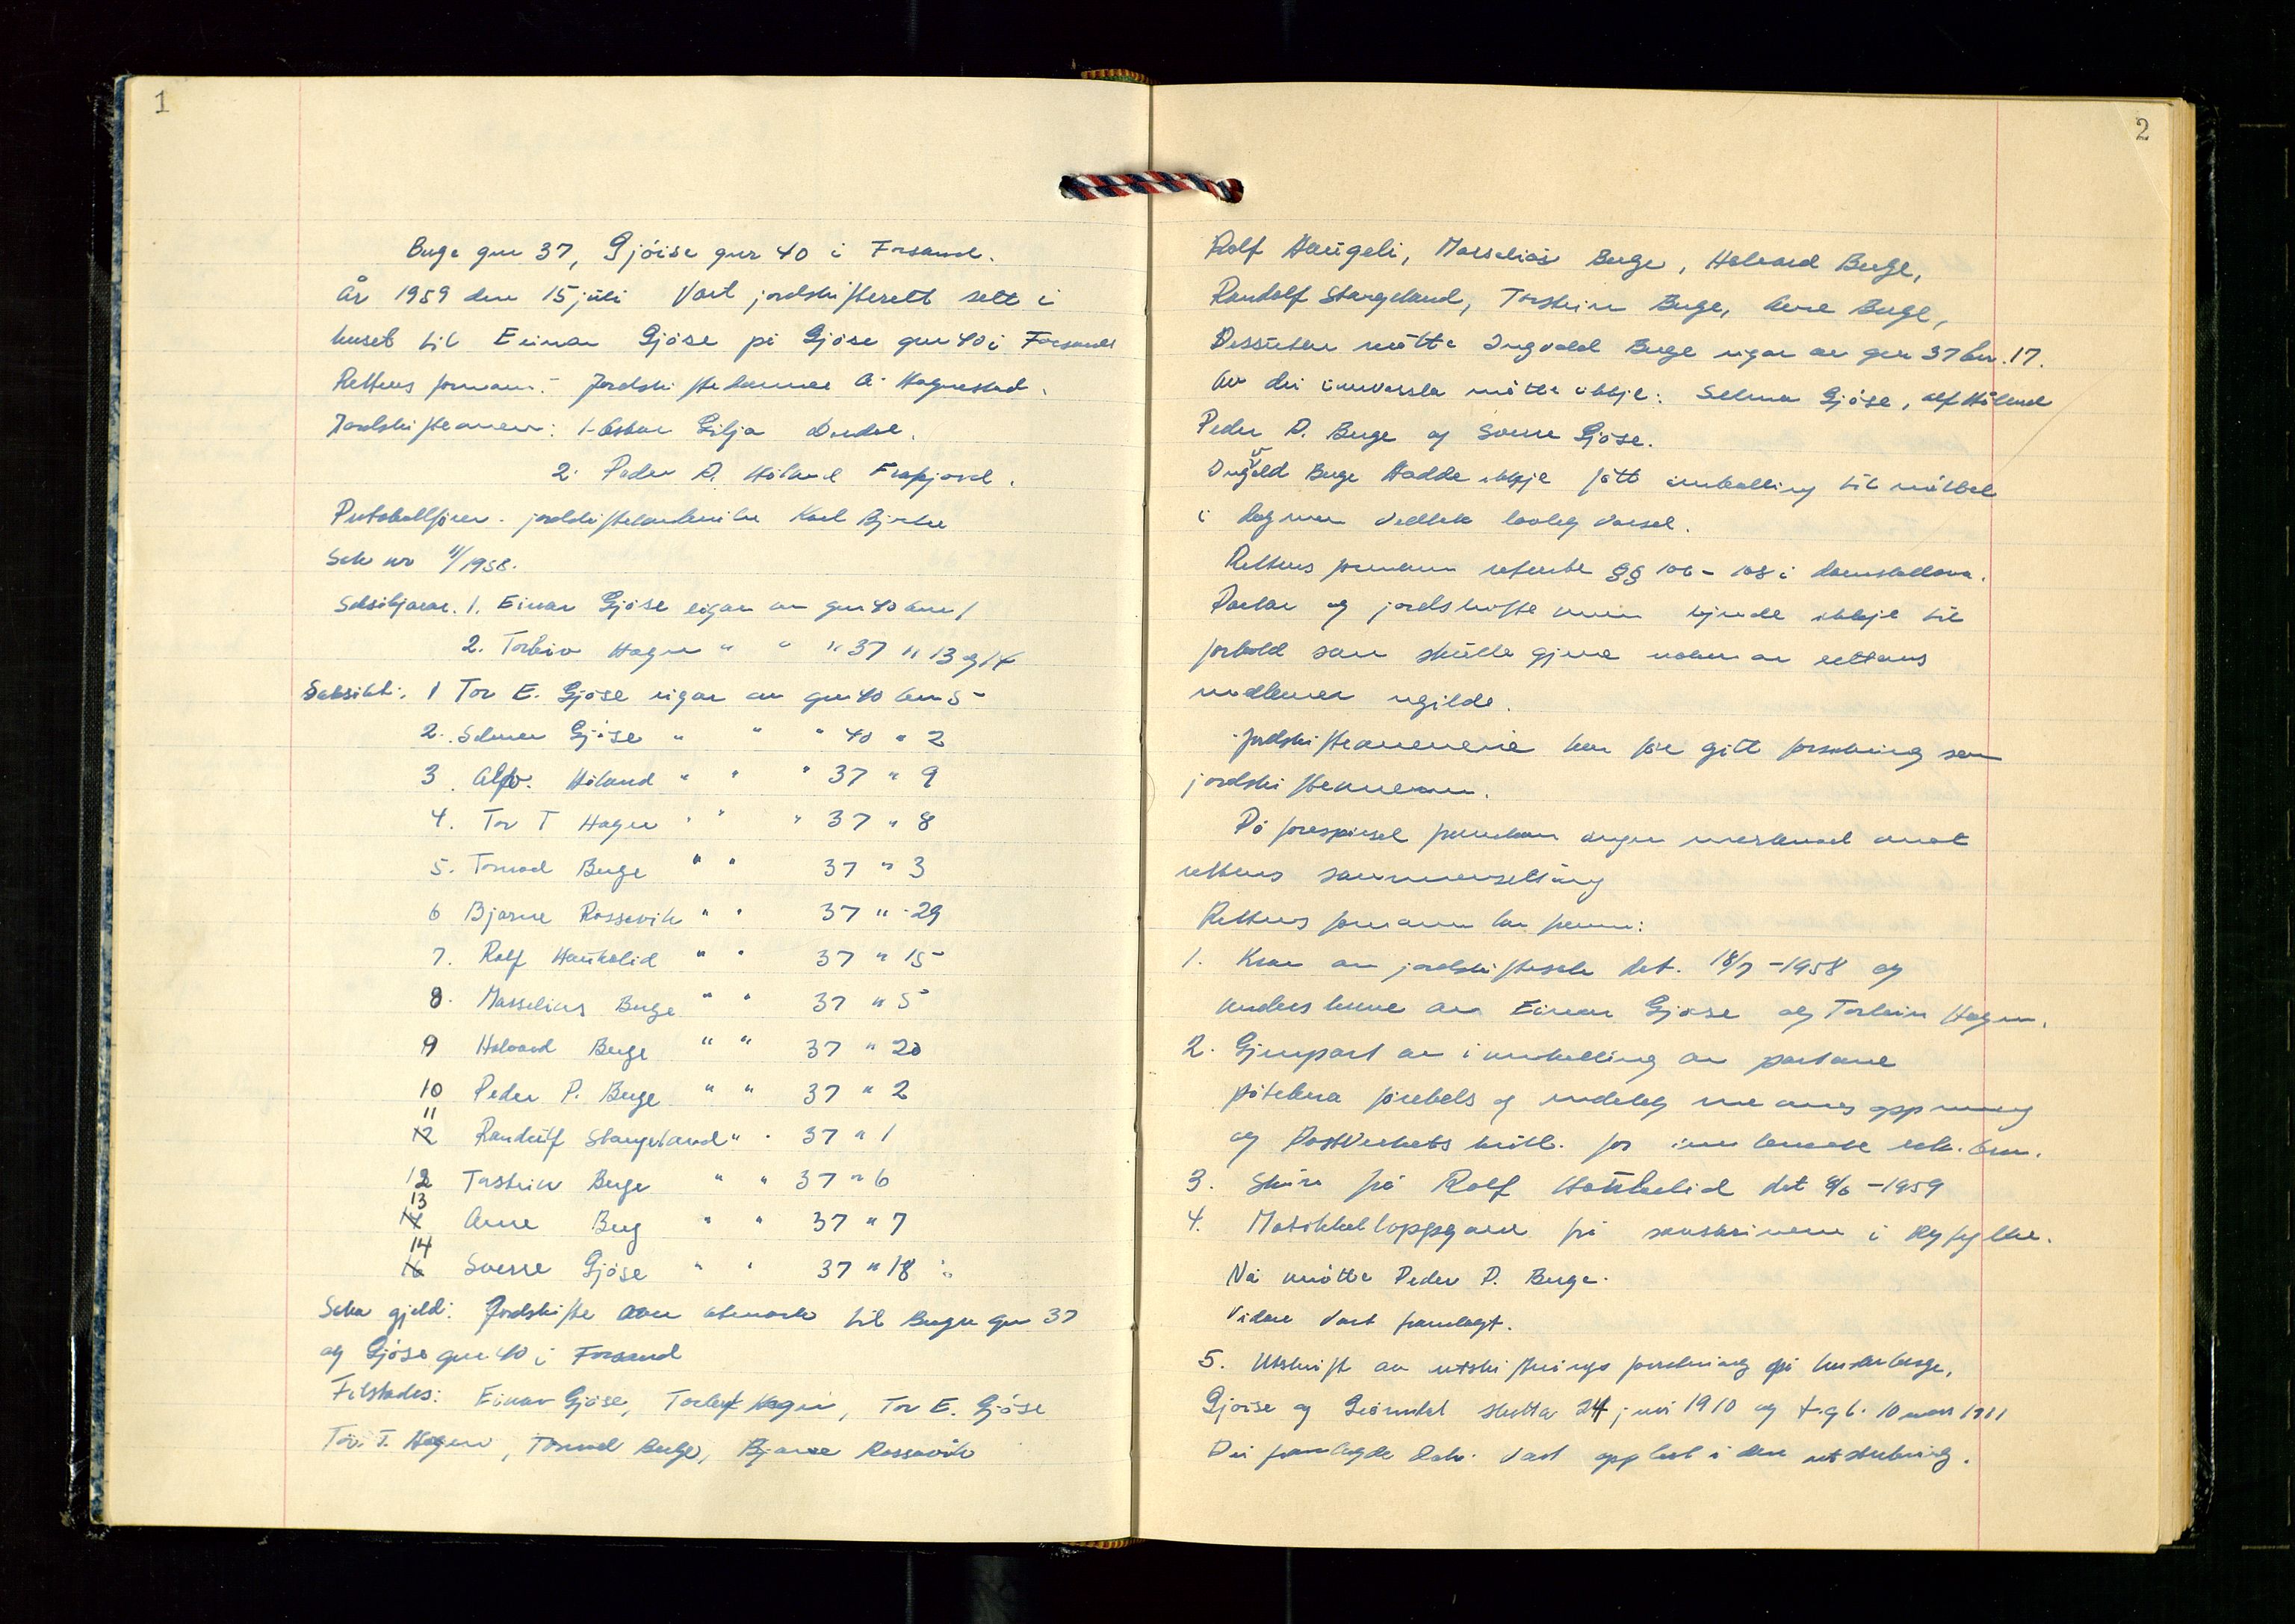 1
Berge gnr 37, Gjöise gnr 40 i Forsand.
År 1959 den 15 juli Vart jordskifterett sett i
huset til Einar Gjöse på Gjöse gnr 40 i Forsand
Rettens formann: Jordskiftedommar A. Hagnestad.
Jordskiftemenn: 1. Oskar Gilja Dirdal.
2. Peder A. Höland Frafjord.
Protokollförer. jordskiftekandidat Karl Bjerke
Sak nr 11/1958.
Saksökjarar. 1. Einar Gjöse eigar av gnr 40 bnr 1
2. Torleiv Hagen " " " 37 " 13 og 14
Saksökte: 1 Tor E. Gjöse eigar av gnr 40 bnr 5
2. Selmer Gjöse " " " 40 " 2
3. Alf Höland " " " 37 " 9
4. Tor T Hagen " " " 37 " 8
5. Tormod Berge " " 37 " 3
6 Bjarne Rossavik " " 37 " 29
7. Rolf Haukalid " " 37 " 15
8. Marselius Berge " " 37 " 5
9 Halvard Berge " " 37 " 20
10 Peder P. Berge " " 37 " 2
11 Randulf Stangeland " " 37 " 1
12 Torstein Berge " " 37 " 6
13 Arne Berg " " 37 " 7
14 Sverre Gjöse " " 37 " 18
Saka gjeld: Jordskifte av utmark til Berge gnr 37
og Gjöse gnr 40 i Forsand
Tilstades: Einar Gjöse, Torleif Hagen, Tor E. Gjöse
Tor. T. Hagen, Tormod Berge, Bjarne Rossavik
2
Rolf Haugeli, Marselius Berge, Halvard Berge,
Randolf Stangeland, Torstein Berge, Arne Berge,
Dessutan mötte Ingvald Berge eigar av gnr 37 bnr. 17.
Av dei innvarsla mötte ikkje: Selmer Gjöse, Alf Höland
Peder P. Berge og Sverre Gjöse.
Ingvald Berge Hadde ikkje fått innkalling til møtet
i dag men vedtok lovleg varsel.
Rettens formann referte §§ 106 - 108 i domstollova.
Partar og jordskiftemenn kjende ikkje til
forhold som skulle gjera noken av rettens
medlemer ugilde.
Jordskiftemennene har för gitt forsikring som
jordskiftemenn.
På forespörsel framkom ingen merknad mot
rettens sammensetting
Rettens formann la fram:
1. Krav om jordskiftesak dat. 18/7 - 1958 og
underskreve av Einar Gjöse og Torleiv Hagen.
2. Gjenpart av innkalling av partane
og Postverkets kvitt. for innleverte rek. brev.
3. Skriv frå Rolf Haukalid dat 8/6 - 1959
4. Matrikkeloppgave frå sorenskrivaren i Ryfylke.
Nå mötte Peder P. Berge.
Vidare vart framlagt.
5. Utskrift av utskiftnings forretning på
Gjöise og slutta 24 juni 1910 og t.gl. 10 mars 1911
Dei framlagde dok. vart opplest i den utstrekning.